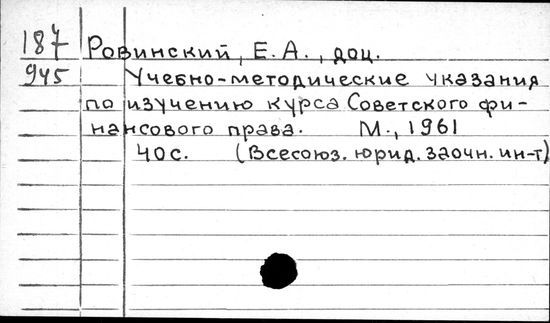 187 Ровинский, Е.А., доц.
945 Учебно-методические указания
по изучению курса Советского фи-
нансового права. М., 1961
40с. (Всесоюз. юрид. заочн. ин-т)